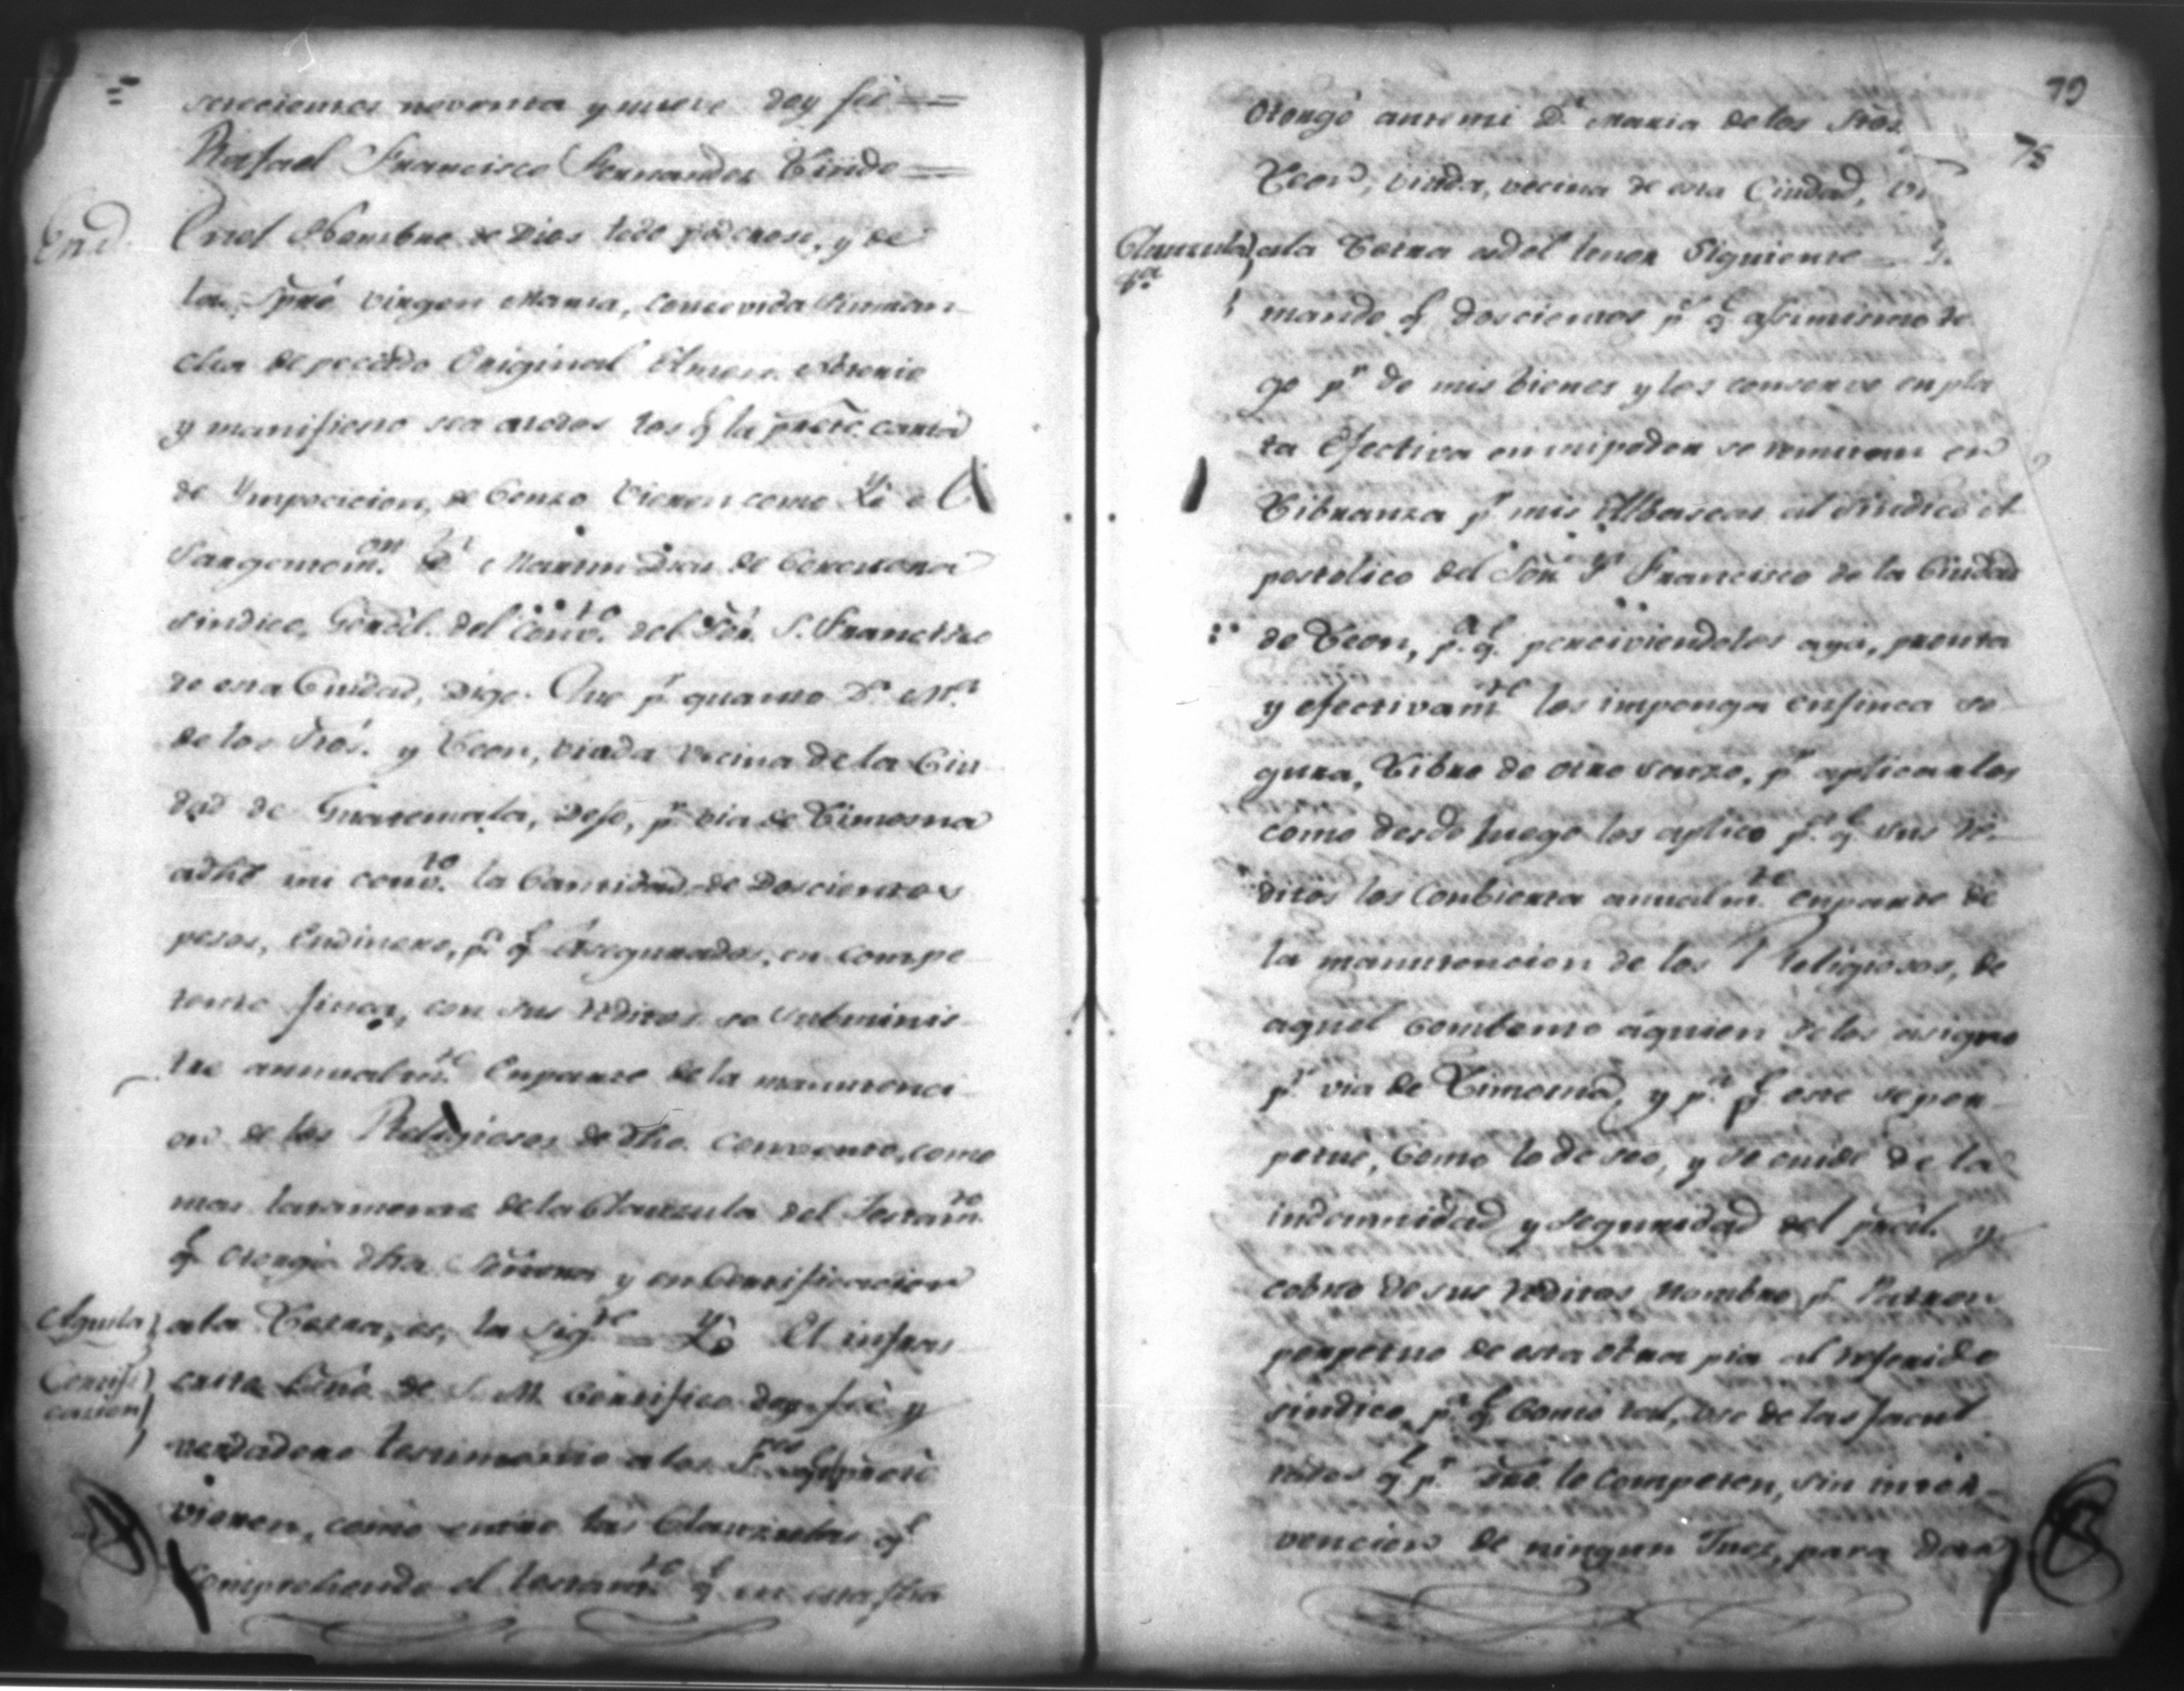 setecientos noventa y nueve doy fée ==
Rafael Francisco Fernandez Lindo ==
En el Nombre de Dios todo poderoso, y de
la Virgen Maria, concevida sin man-
cha de pecado Original Amen. Notorio
y manifiesto sea a todos los q.e la press.te carta
de Ymposicion, de Censo vieren como Yo el
Sargento m.or D.n Martin Dias de
sindico, Gen̄al. del Conv.to del Sor. S. Francisco
de esta Ciudad, Digo. Que p.r quanto D.a M.a
de los y Leon, viuda vecina de la Ciu-
dad de Guatemala, Dejo, p.r via de Limosna
adho mi conv.to la Cantidad de Doscientos
pesos, en dinero, p.a q.e asegurados, en compe-
tente finca, con sus reditos se subminis-
tre annualm.te en parte de la manutenci-
on de los Religiosos de dho. convento, como
mas laramente de la Clauzula del Testam.to
q.e otorgó dha Señora y en Certificacion
Aguila
ala Letra, es, la sig.te = Yo El infras-
Certifi
cacion
cripto de S. M. Certifico doy feé y
verdadero testimonio a los S.res q.e
vieren, como entre las Clauzulas q.e
comprehende el testam.to q.e en esta fha
79
75
Otorgó ante mi D.a Maria de los
Leon, viuda, vecina de esta Ciudad,
Clauzula
ala Letra es del tenor Siguiente =
mando q.e doscientos p.s q.e assimismo ten-
go p.r de mis bienes y los conservo en pla
ta Efectiva en mi poder se remitan en
Libranza p.r mis Albaseas al Sindico A
postolico del Sor. S.n Francisco de la Ciudad
de Leon, p.a q.e perciviendolos aga, pronta
y efectivam.te los imponga en finca se-
gura, Libre de otro Senzo, p.a aplicarlos
como desde luego los aplico p.a q.e sus re-
ditos los Conbierta annualm.te en parte de
la manutencion de los Religiosos, de
aquel Combento aquien se los asigno
p.r via de Limosna, y p.a q.e este se per-
petue, Como lo deseo, y se cuide de la
indemnidad y Seguridad del y
cobro de sus reditos nombro p.r Patron
perpetuo de esta Obra pia al referido
sindico, p.a q.e Como tal, use de las facul-
tades q.e p.r dro. le competen, sin inter-
vencion de ningun Juez, para dar